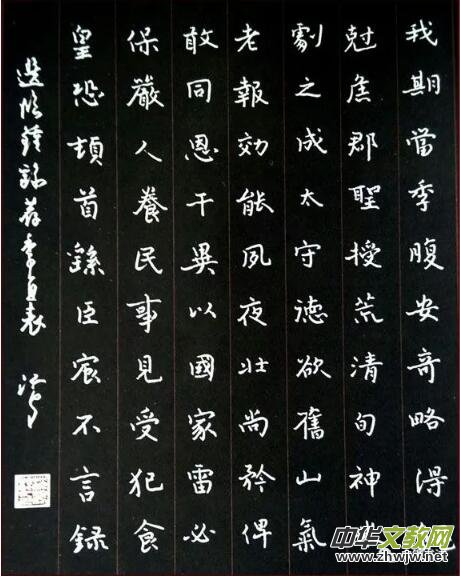 我期當季腹安奇略得
尅焦郡聖授荒清旬神
劇之成太守德欲舊山氣
老報効能夙夜壯尚矜俾
敢同恩干異以國家雷必
保嚴人養民事見受犯食
皇恐頓首繇臣宸不言録
選臨鍾繇荐季直表
中华文教网
www.zhwjw.net